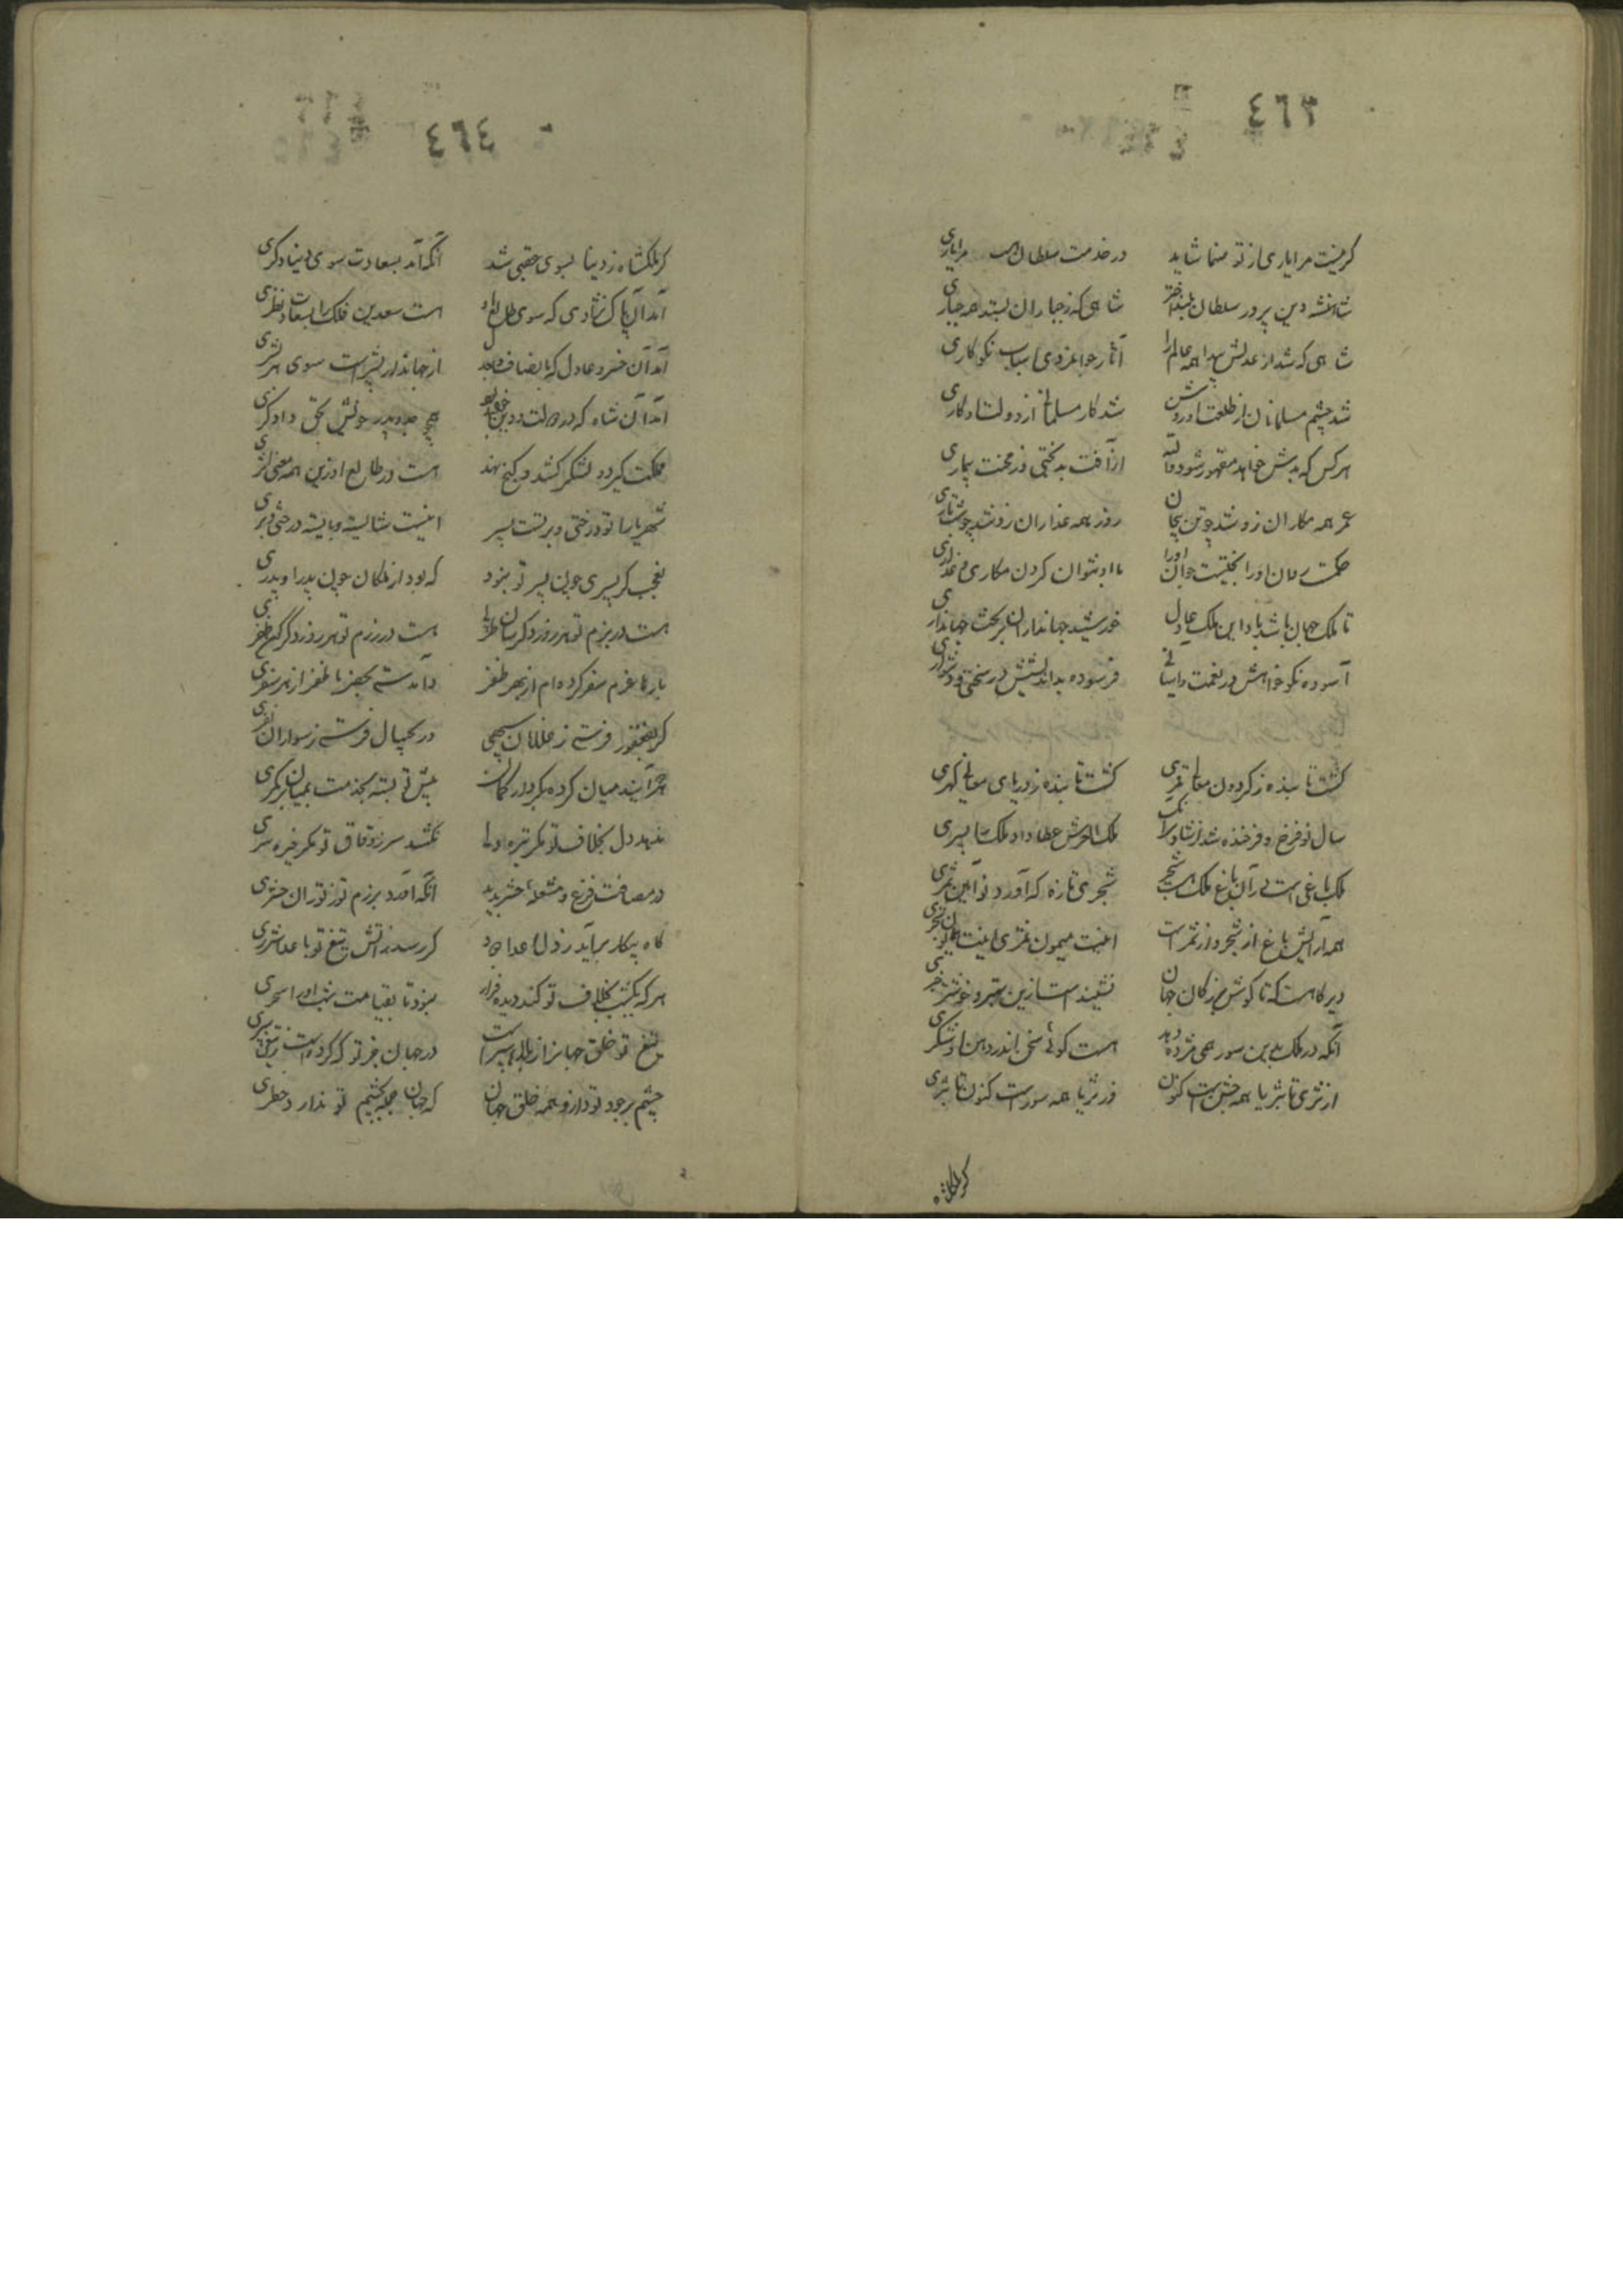 ٤٦٣
گر نیست مرا یاری از تو صنما شاید در خدمت سلطان مرا یاری
شاهنشه دین پرور سلطان بلند اختر شاهی که ز جباران بستد همه جباری
شاهی که شد از عدلش پیدا همه عالم را آثار جوانمردی اسباب نکوکاری
شد چشم مسلمانان از طلعت او روشن شد کار مسلمانی از دولت او کاری
هر کس که بدش خواهد مقهور شود از آفت بدبختی وز محنت بیماری
عمر همه مکاران زو شد چو تن بیجان روز همه غداران زو شد چو شب تاری
حکمت او را بختیست جوان او را با او نتوان کردن مکاری و غداری
تا ملک جهان باشد باد این ملک عادل خورشید جهانداران بر تخت جهانداری
آسوده نکوخواهش در نعمت و آسانی فرسوده بداندیشش در سختی و دشواری
گشت تابنده ز گردون معالی قمری گشت تابنده ز دریای معالی گهری
سال نو فرخ و فرخنده شد از شادی ملک العرش عطا داد ملک را پسری
ملک باغی است در آن باغ ملک هست شجر شجری تازه که آورد نوآیین ثمری
همه آرایش باغ از شجر و از ثمر است اینت میمون ثمری اینت همایون شجری
دیرگاهست که تا گوش بزرگان جهان نشنید است ازین بهتر و خوشتر خبری
آنکه در ملک بدین سور همی مژده دهد هست گوئی سخن اندر دهن او شکری
از ثری تا بثریا همه جشن است کنون وز ثریا همه سور است کنون تا بثری
گر ملکشاه
٤٦٤
گر ملکشاه ز دینا بسوی عقبی شد آنک آمد بسعادت سوی دنیا دگری
آمد آن پاک نژادی که سوی طالع او هست سعدین فلک را بسعادت نظری
آمد آن خسرو عادل که بانصاف از جهاندار بشیر است سوی هر بشری
آمد آن شاه که در دولت و دین هیچ جد و پدر خویش بحق دادگری
مملکت گیرد و لشکر کشد و گنج نهد هست در طالع او زین همه معنی اثری
شهریارا تو درختی و برتست پسر اینت شایسته و بایسته درختی و بری
نه عجب گر پسری چون پسر تو نبود که نبود از ملکان چون پدر او پدری
هست در بزم تو هر روز دگرسان طربی هست در رزم تو هر روز دگرگون ظفری
بارها عزم سفر کرده‌ام از بهر ظفر و آمدستی بحضر با ظفر از هر سفری
گر بفغفور فرستی ز غلامان سپهی ور بچیپال فرستی ز سواران نفری
آیند میان کرده بکردار کمان پیش تو بسته بخدمت بمیان بر کمری
ننهد دل بخلاف تو مگر تیره دلی نکشد سر ز وفاق تو مگر خیره سری
آنکه آورد برزم تو ز توران حشری
گاه پیکار برآید ز دل اعدا دود گر رسد ز آتش تیغ تو باعدا شرری
هر که یکشب بخلاف تو کند دیده فراز نبود تا بقیامت شب او را سحری
تیغ تو خلق جهانرا ز بلاها سپر است در جهان جز تو که کرده است ز تیغی سپری
چشم بر جود تو دارند همه خلق جهان که جهان جمله بچشم تو ندارد خطری